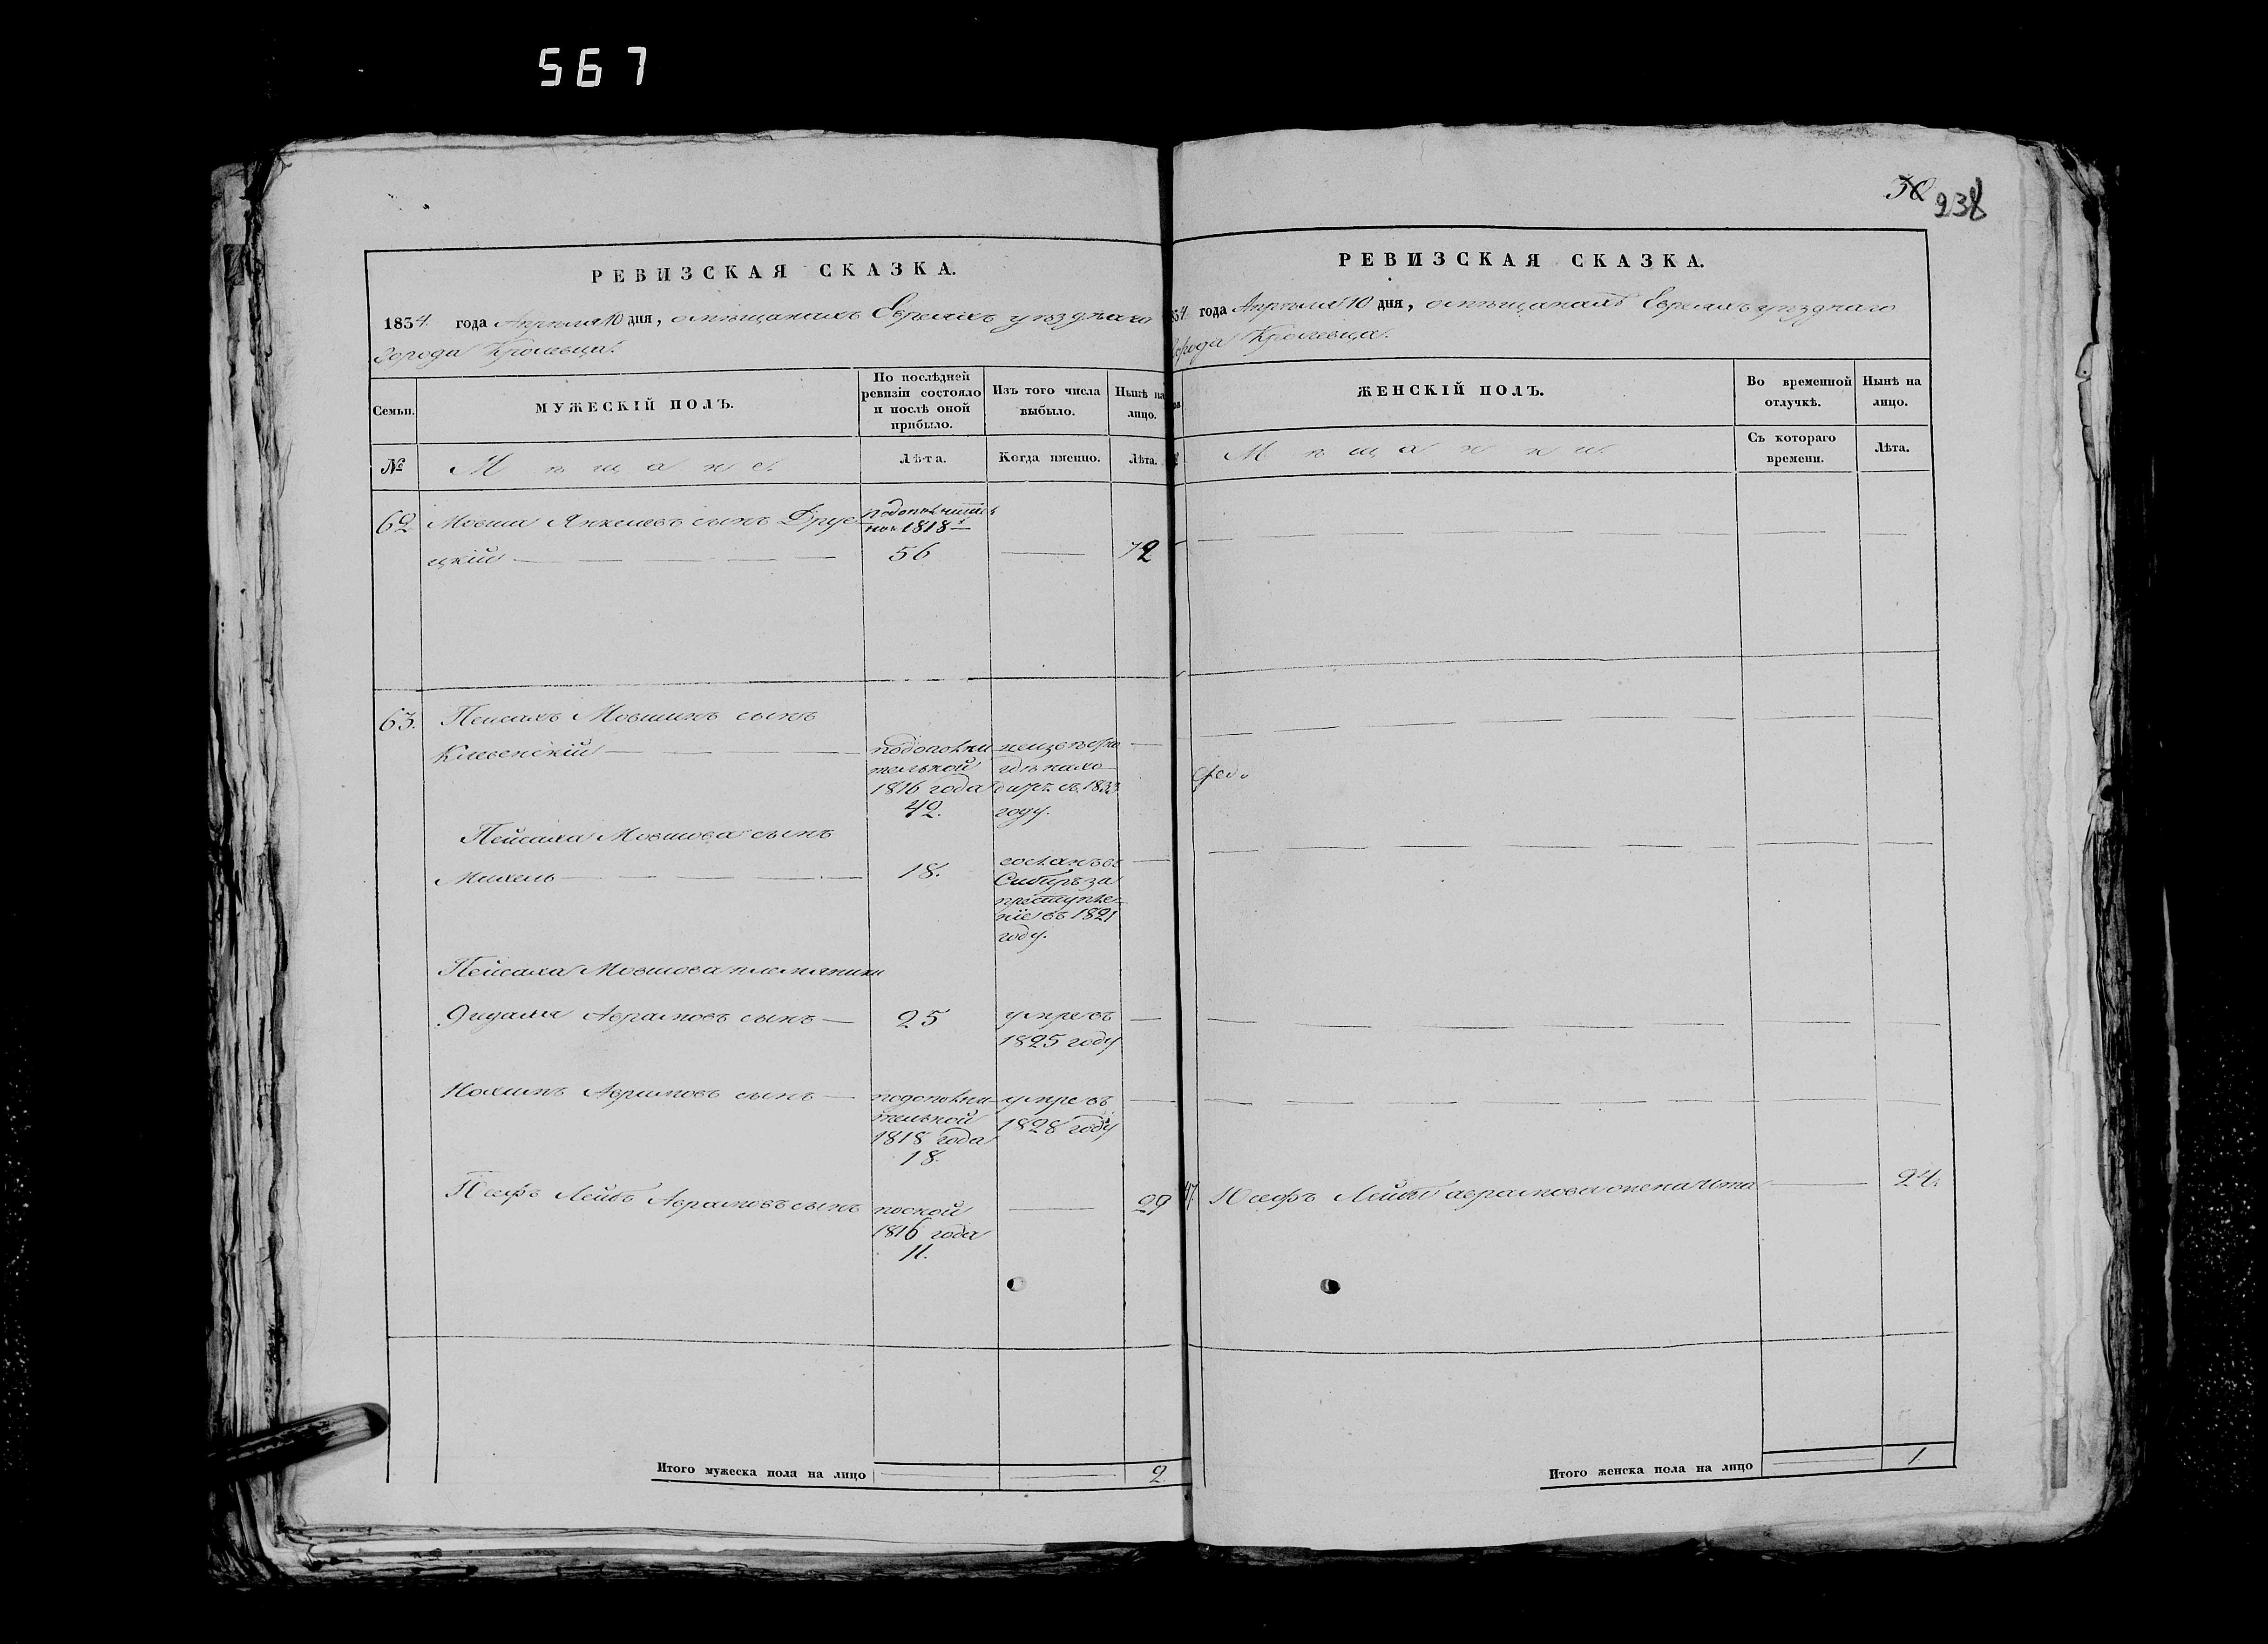 567
30 238
РЕВИЗСКАЯ СКАЗКА.
1834 года Апреля 10 дня, о мѣщанахъ Евреяхъ уѣзднаго
города Кролевца.
Семьи.
МУЖЕСКІЙ ПОЛЪ.
По послѣдней
ревизіи состояло
и послѣ оной
прибыло.
Изъ того числа
выбыло.
Нынѣ на
лицо.
№
Мѣщане.
Лѣта.
Когда именно.
Лѣта.
62
Мовша Янкелевъ сынъ Друс
цкій
1818
56
72
63.
Пейсахъ Мовшинъ сынъ
Клевенскій
подополни
тельной
1816 года
42.
неизвестно
где нахо
съ 1833
году.
Пейсаха Мовшова сынъ
Михель
18.
сосланъ въ
Сибирь за
преступле
ніе въ 1821
году.
Пейсаха Мовшова племянники
Авраамовъ сынъ
25
умре въ
1825 году
Нохимъ Абрамовъ сынъ
подополни
тельной
1818 года
18.
умре въ
1828 году
Іосефъ Лейбъ Абрамовъ сынъ
1816 года
11.
29
Итого мужеска пола на лицо
2
РЕВИЗСКАЯ СКАЗКА.
34 года Апреля 10 дня, о мѣщанахъ Евреяхъ уѣзднаго
города Кролевца.
ЖЕНСКІЙ ПОЛЪ.
Во временной
отлучкѣ.
Нынѣ на
лицо.
Мѣщанки.
Съ котораго
времени.
Лѣта.
Іосефъ Лейбы Абрамова жена
24.
Итого женска пола на лицо
1